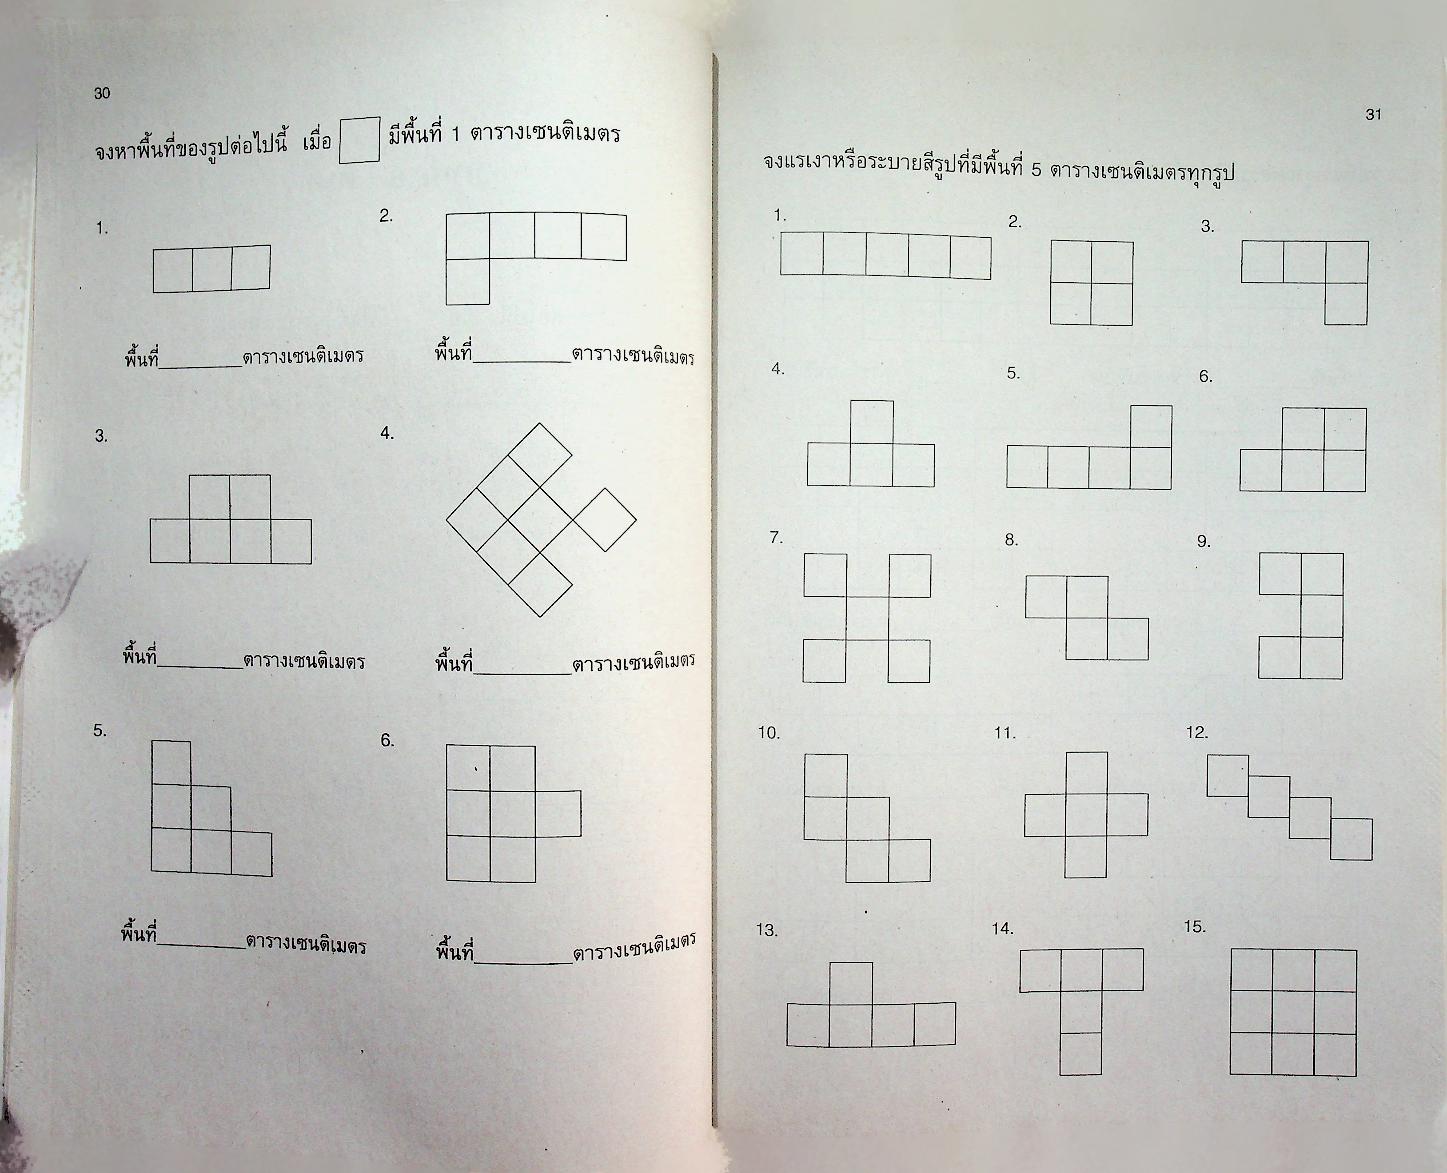 30
จงหาพื้นที่ของรูปต่อไปนี้ เมื่อ มีพื้นที่ 1 ตารางเซนติเมตร
1. 2.
พื้นที่________ตารางเซนติเมตร พื้นที่________ตารางเซนติเมตร
3. 4.
พื้นที่________ตารางเซนติเมตร พื้นที่________ตารางเซนติเมตร
5. 6.
พื้นที่________ตารางเซนติเมตร พื้นที่________ตารางเซนติเมตร
31
จงแรเงาหรือระบายสีรูปที่มีพื้นที่ 5 ตารางเซนติเมตรทุกรูป
1. 2. 3.
4. 5. 6.
7. 8. 9.
10. 11. 12.
13. 14. 15.